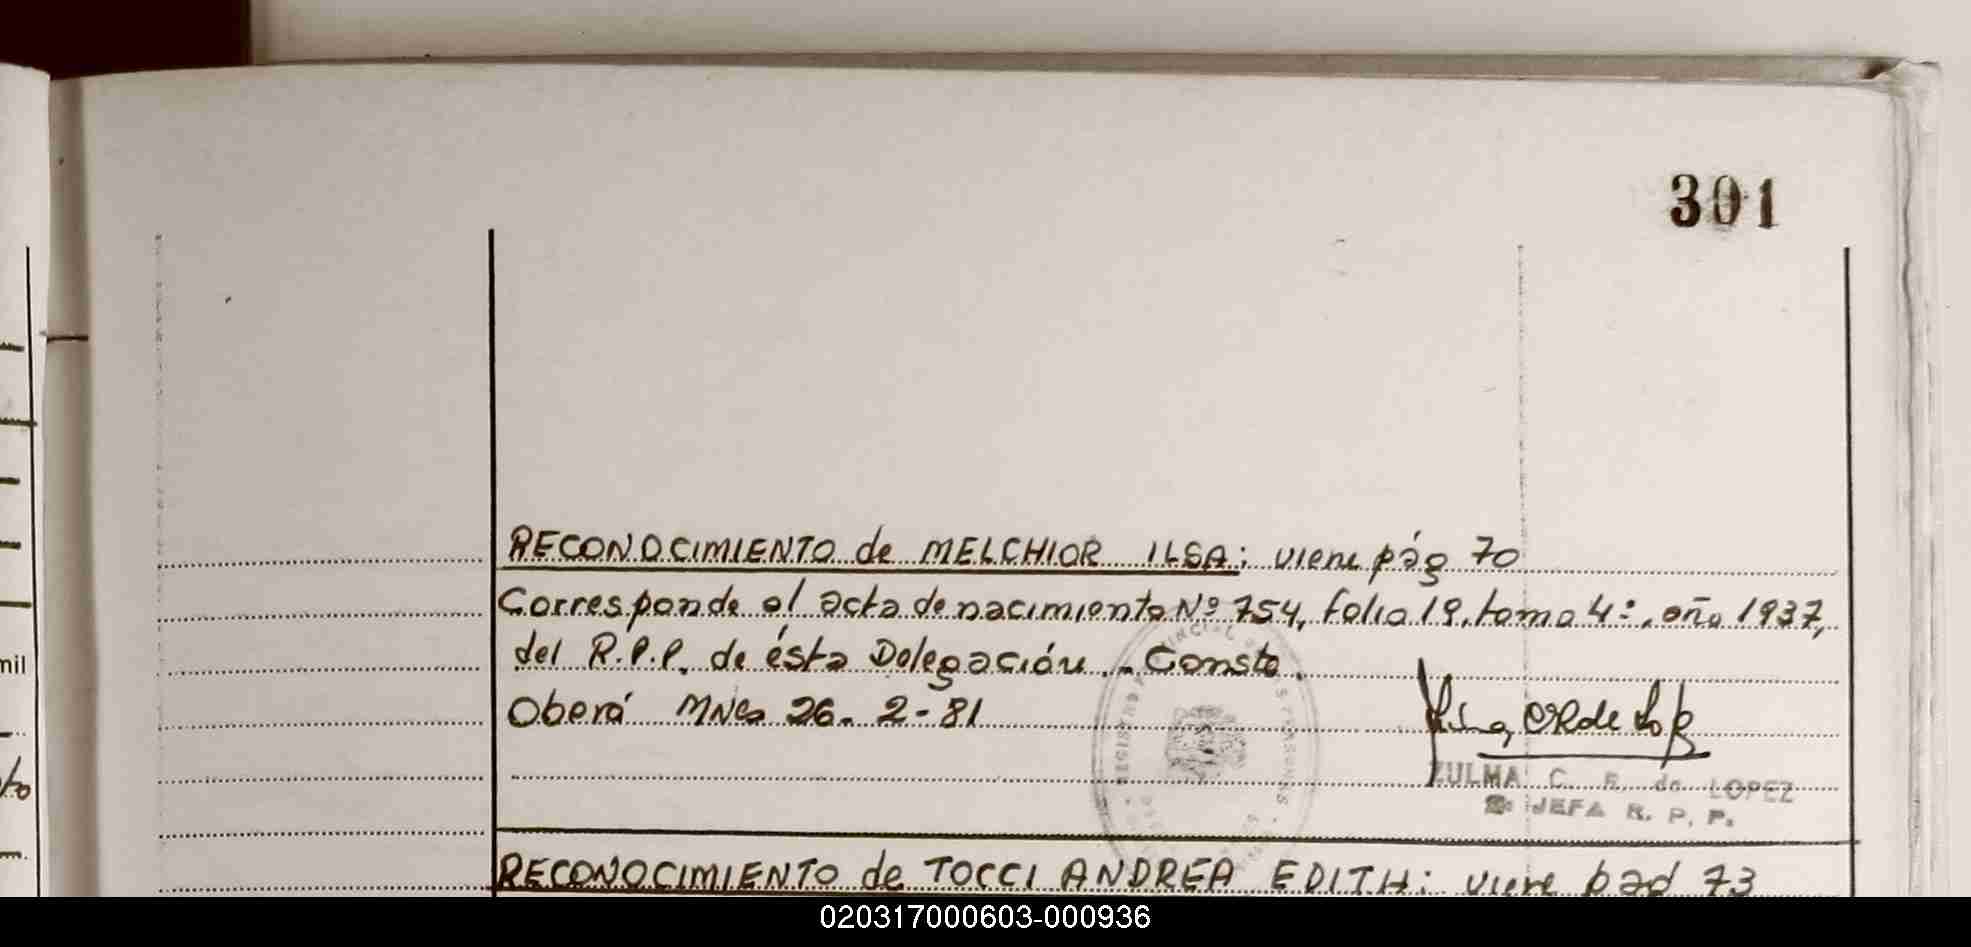 301
RECONOCIMIENTO de MELCHIOR ILSA; viene pág 70
Corresponde al acta de nacimiento Nº 754, folio 19, tomo 4º, año 1937,
del R.P.P. de ésta Delegación.- Conste.
Oberá Mnes 26- 2-81
ZULMA C. R. de LOPEZ
JEFA R. P. P.
RECONOCIMIENTO de TOCCI ANDREA EDITH: viene pág 73
mil
020317000603-000936